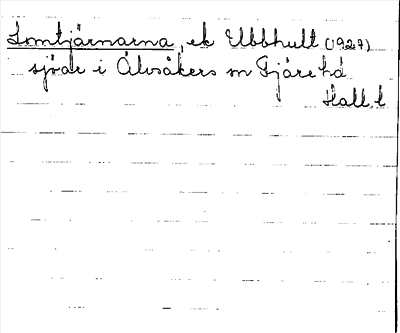 Lomtjärnarna, ek Ubbhult (1927)
sjöar i Älvsåkers sn Fjäre hd
Hall. l